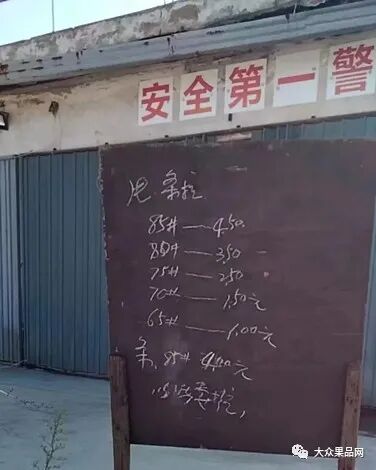 安全第一警
85# — 4.50
80# — 3.50
75# — 2.50
70# — 1.50元
65# — 1.00元
条.85# 4.00元
大众果品网